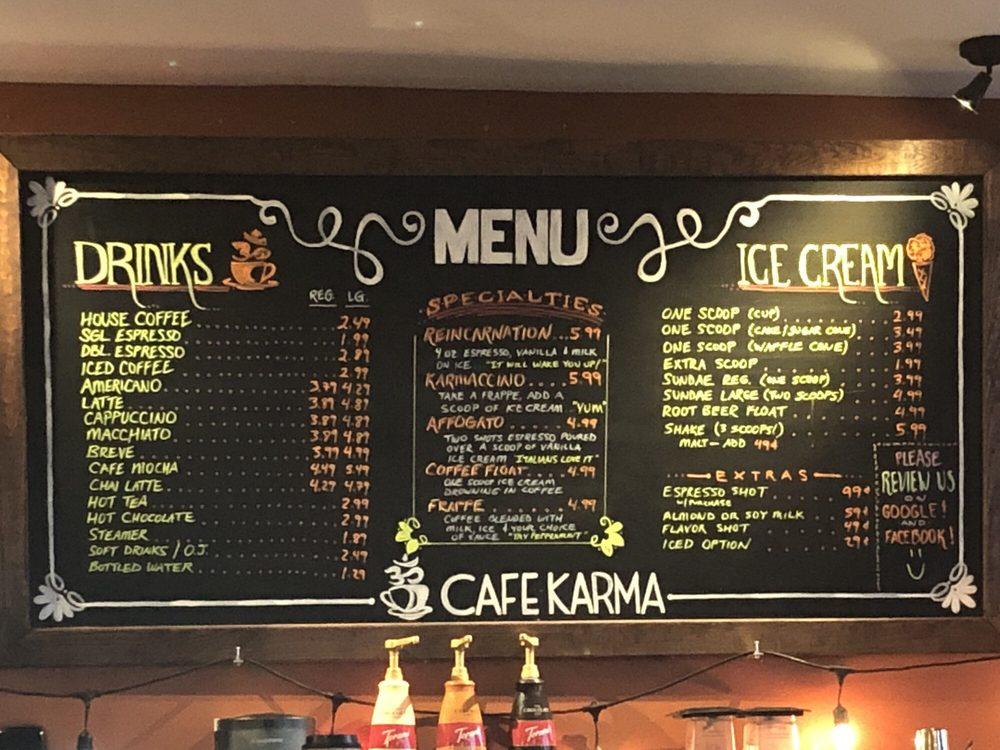 MENU
DRINKS
REG. LG.
HOUSE COFFEE 2.49
SGL ESPRESSO 1.99
DBL. ESPRESSO 2.89
ICED COFFEE 2.99
AMERICANO 3.79 4.29
LATTE 3.89 4.89
CAPPUCCINO 3.89 4.89
MACCHIATO 3.89 4.89
BREVE 3.99 4.99
CAFE MOCHA 4.49 5.49
CHAI LATTE 4.29 4.79
HOT TEA 2.99
HOT CHOCOLATE 2.99
STEAMER 1.89
SOFT DRINKS / O.J. 2.49
BOTTLED WATER 1.29
SPECIALTIES
REINCARNATION...5.99
4 OZ ESPRESSO, VANILLA & MILK
ON ICE. "IT WILL WAKE YOU UP!"
KARMACCINO....5.99
TAKE A FRAPPE, ADD A
SCOOP OF ICE CREAM "YUM"
AFFOGATO....4.99
TWO SHOTS ESPRESSO POURED
OVER A SCOOP OF VANILLA
ICE CREAM ITALIANS LOVE IT"
COFFEE FLOAT....4.99
ONE SCOOP ICE CREAM
DROWNING IN COFFEE
FRAPPE....4.99
COFFEE BLENDED WITH
MILK, ICE & YOUR CHOICE
OF SAUCE "TRY PEPPERMINT"
ICE CREAM
ONE SCOOP (CUP) 2.99
ONE SCOOP (CAKE/SUGAR CONE) 3.49
ONE SCOOP (WAFFLE CONE) 3.99
EXTRA SCOOP 1.99
SUNDAE REG. (ONE SCOOP) 3.99
SUNDAE LARGE (TWO SCOOPS) 4.99
ROOT BEER FLOAT 4.99
SHAKE (3 SCOOPS!) 5.99
MALT - ADD 49¢
EXTRAS
ESPRESSO SHOT 99¢
W/ PURCHASE
ALMOND OR SOY MILK 59¢
FLAVOR SHOT 49¢
ICED OPTION 29¢
PLEASE
REVIEW US
ON
GOOGLE!
AND
FACEBOOK!
CAFE KARMA
Torani
Torani
Torani